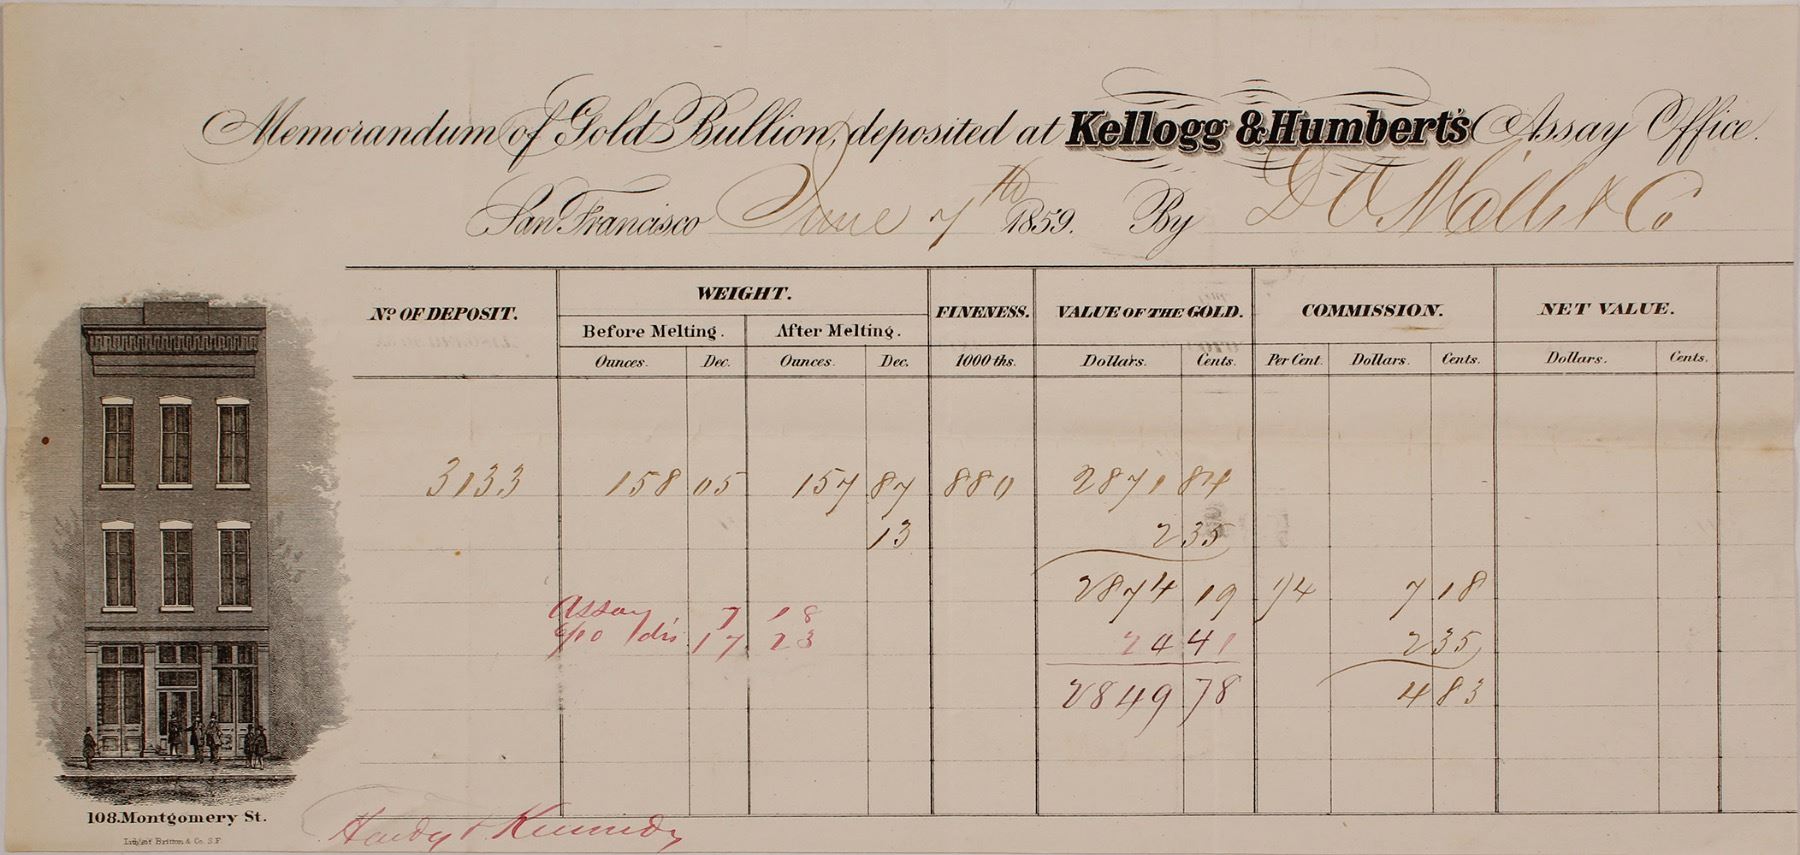 Memorandum of Gold Bullion, deposited at Kellogg & Humbert's Assay Office.
San Francisco June 7th 1859. By D O Mills & Co
No. OF DEPOSIT. WEIGHT. FINENESS. VALUE OF THE GOLD. COMMISSION. NET VALUE.
Before Melting. After Melting.
Ounces. Dec. Ounces. Dec. 1000 ths. Dollars. Cents. Per Cent. Dollars. Cents. Dollars. Cents.
3133 158 05 157 87 880 2871 84
13 2 35
2874 19 1/4 7 18
Assay 7 18
6/10 dis 17 23 24 41 2 35
2849 78 4 83
Hardy & Kennedy
108.Montgomery St.
Lith. of Britton & Co. S.F.